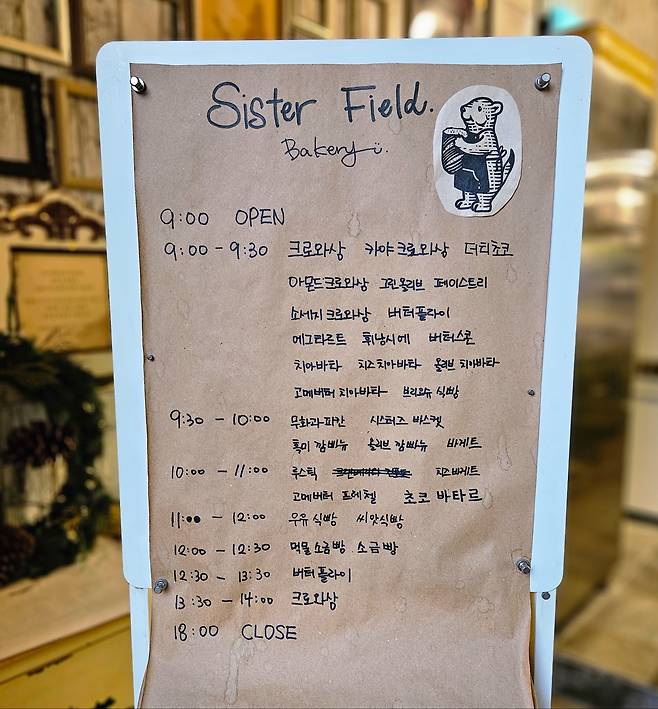 Sister Field.
Bakery
9:00 OPEN
9:00 - 9:30 크로와상 카야크로와상 더티초코
아몬드크로와상 그린올리브 페이스트리
소세지크로와상 버터플라이
에그타르트 휘낭시에 버터스콘
치아바타 치즈치아바타 올리브 치아바타
고메버터 치아바타 브리오슈 식빵
9:30 - 10:00 무화과피칸 시스터즈 바스켓
흑미 깜빠뉴 올리브 깜빠뉴 바게트
10:00 - 11:00 루스틱 치즈바게트
고메버터 프레첼 초코 바타르
11:00 - 12:00 우유식빵 씨앗식빵
12:00 - 12:30 먹물소금빵 소금빵
12:30 - 13:30 버터플라이
13:30 - 14:00 크로와상
18:00 CLOSE